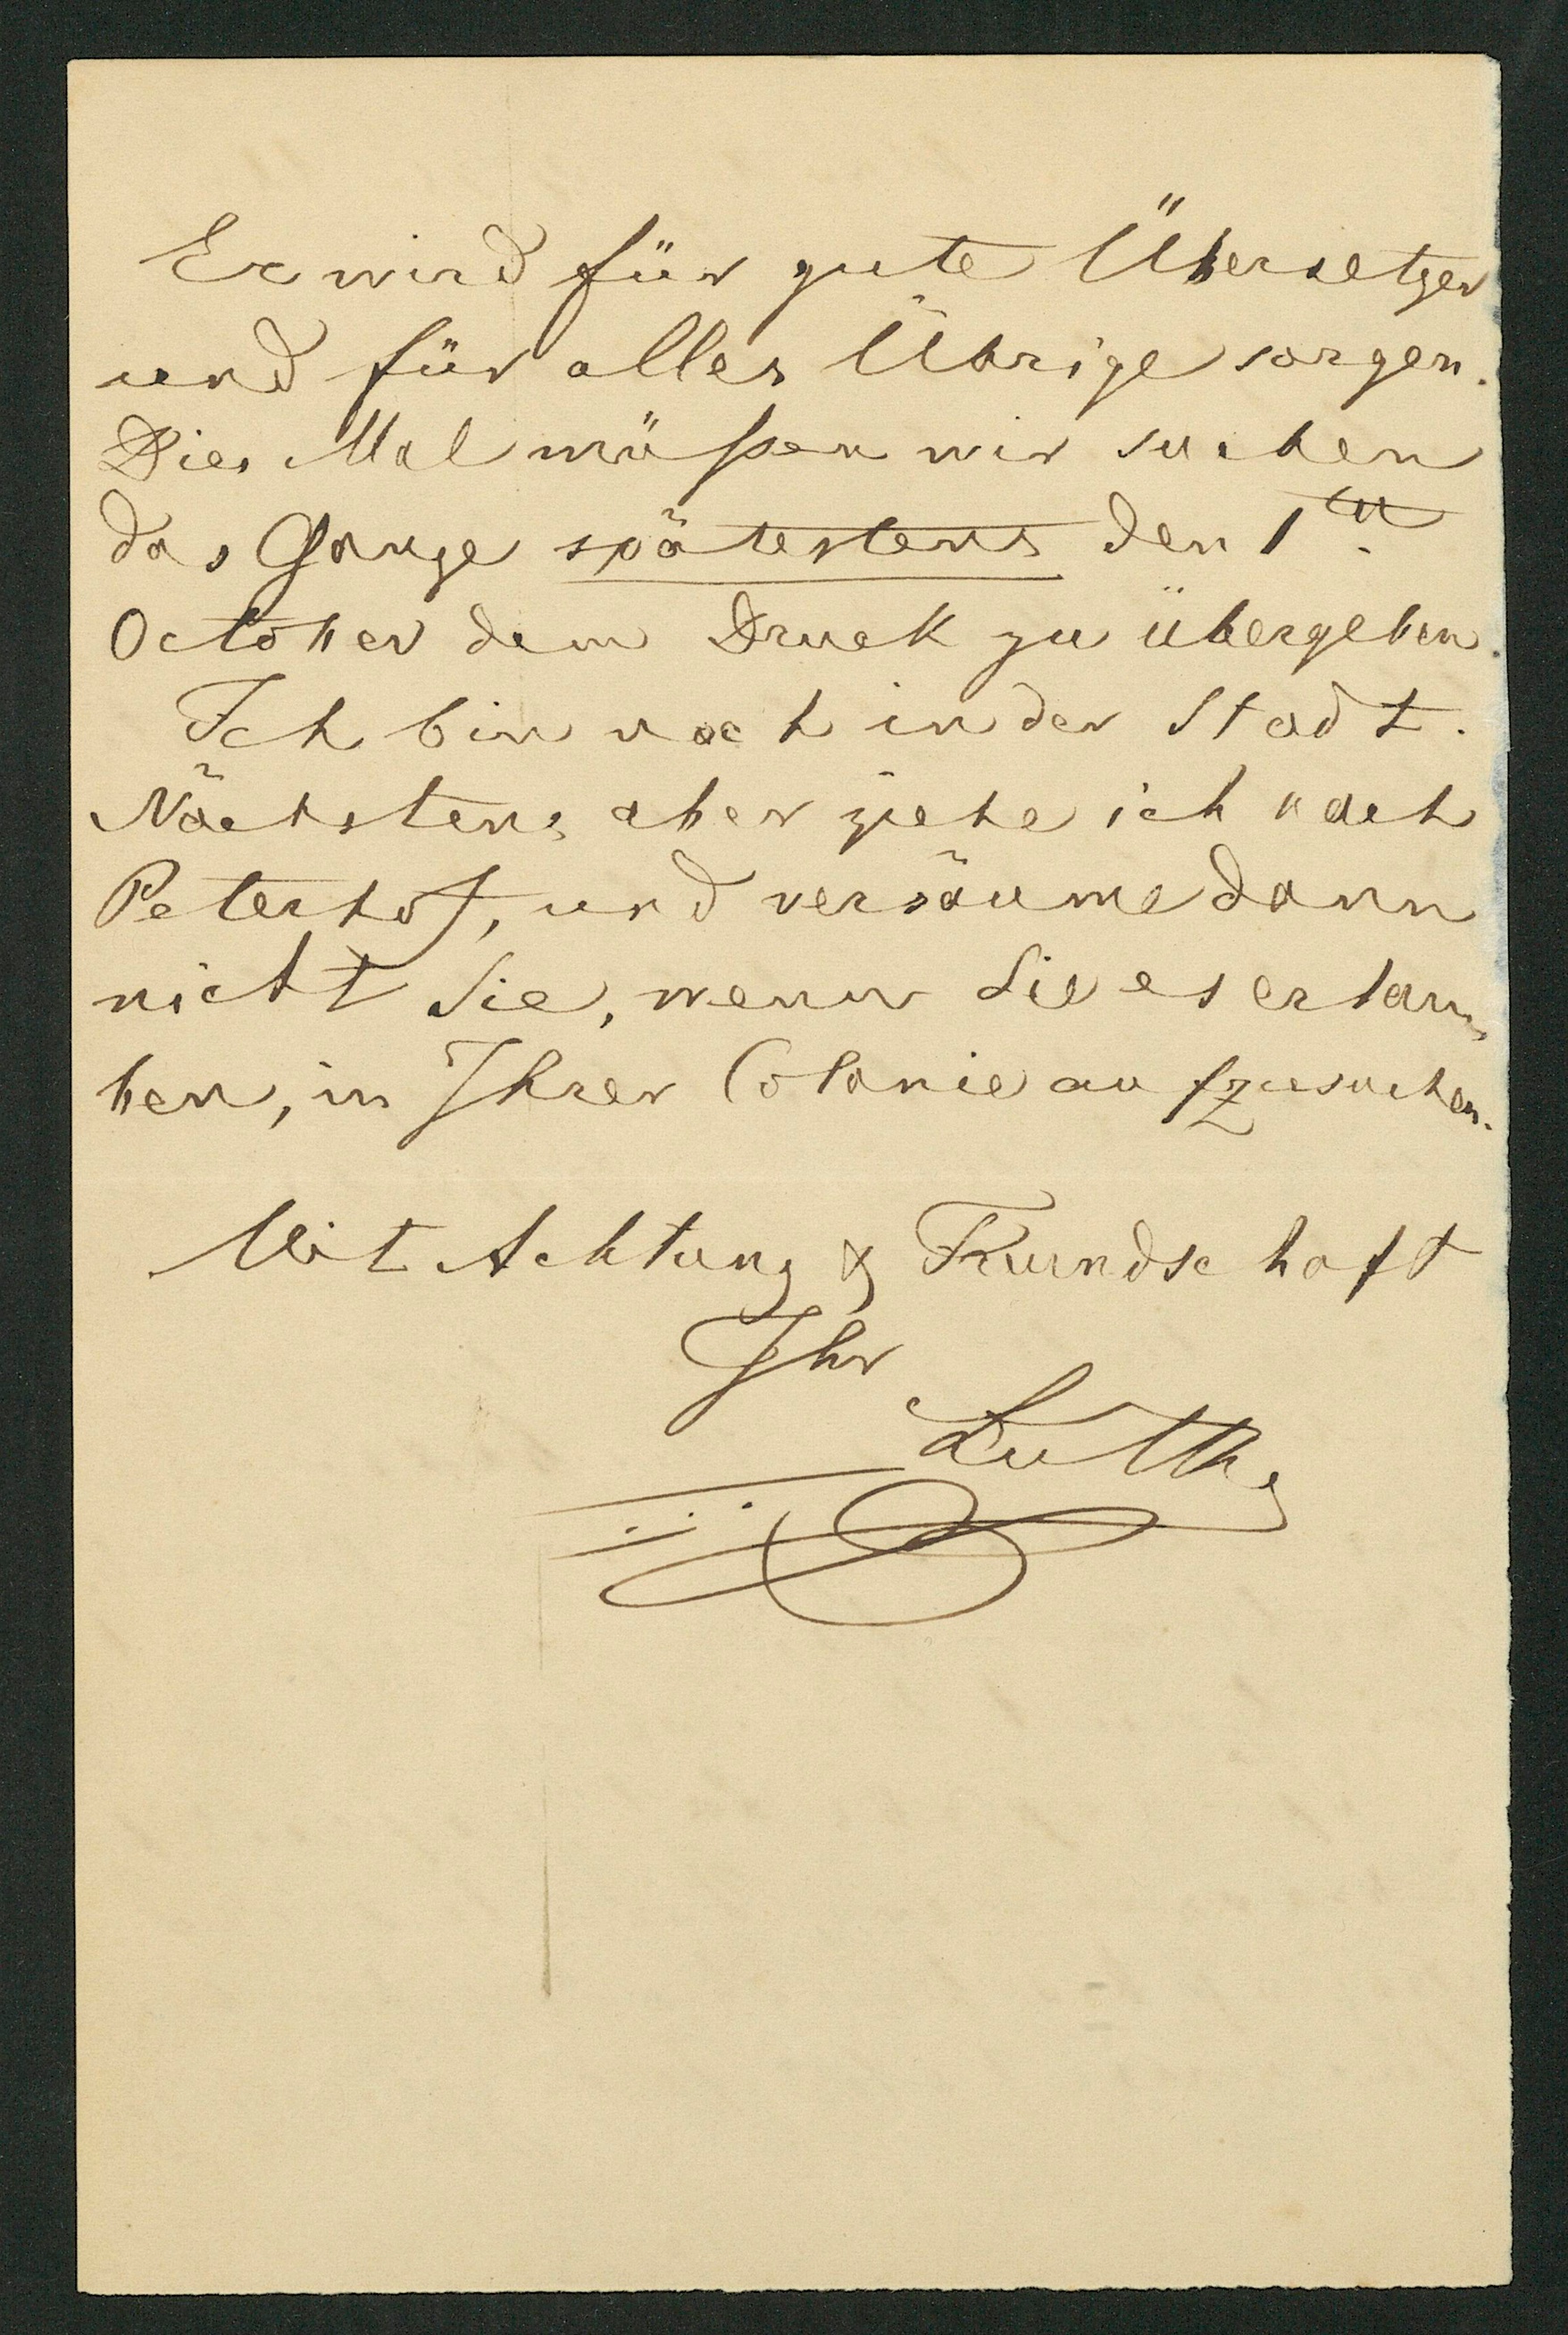 Er wird für gute Übersetzer
und für alles Übrige sorgen.
Dies Mal müßen wir suchen
das Ganze spätestens den 1ten
October dem Druck zu übergeben.
Ich bin noch in der Stadt.
Nächstens aber ziehe ich nach
Peterhof, und versäume dann
nicht Sie, wenn Sie es erlau-
ben, in Ihrer Colonie aufzusuchen.
Mit Achtung & Freundschaft
Ihr